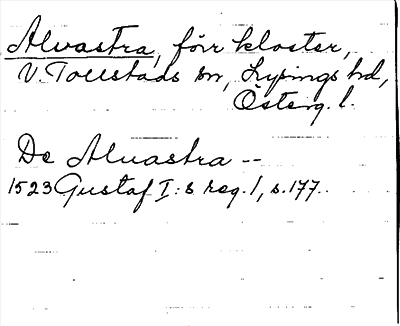 Alvastra, förr kloster,
V. Tollstads sn, Lysings hd,
Österg. l.
De Alvastra --
1523 Gustaf I:s reg. 1, s. 177.